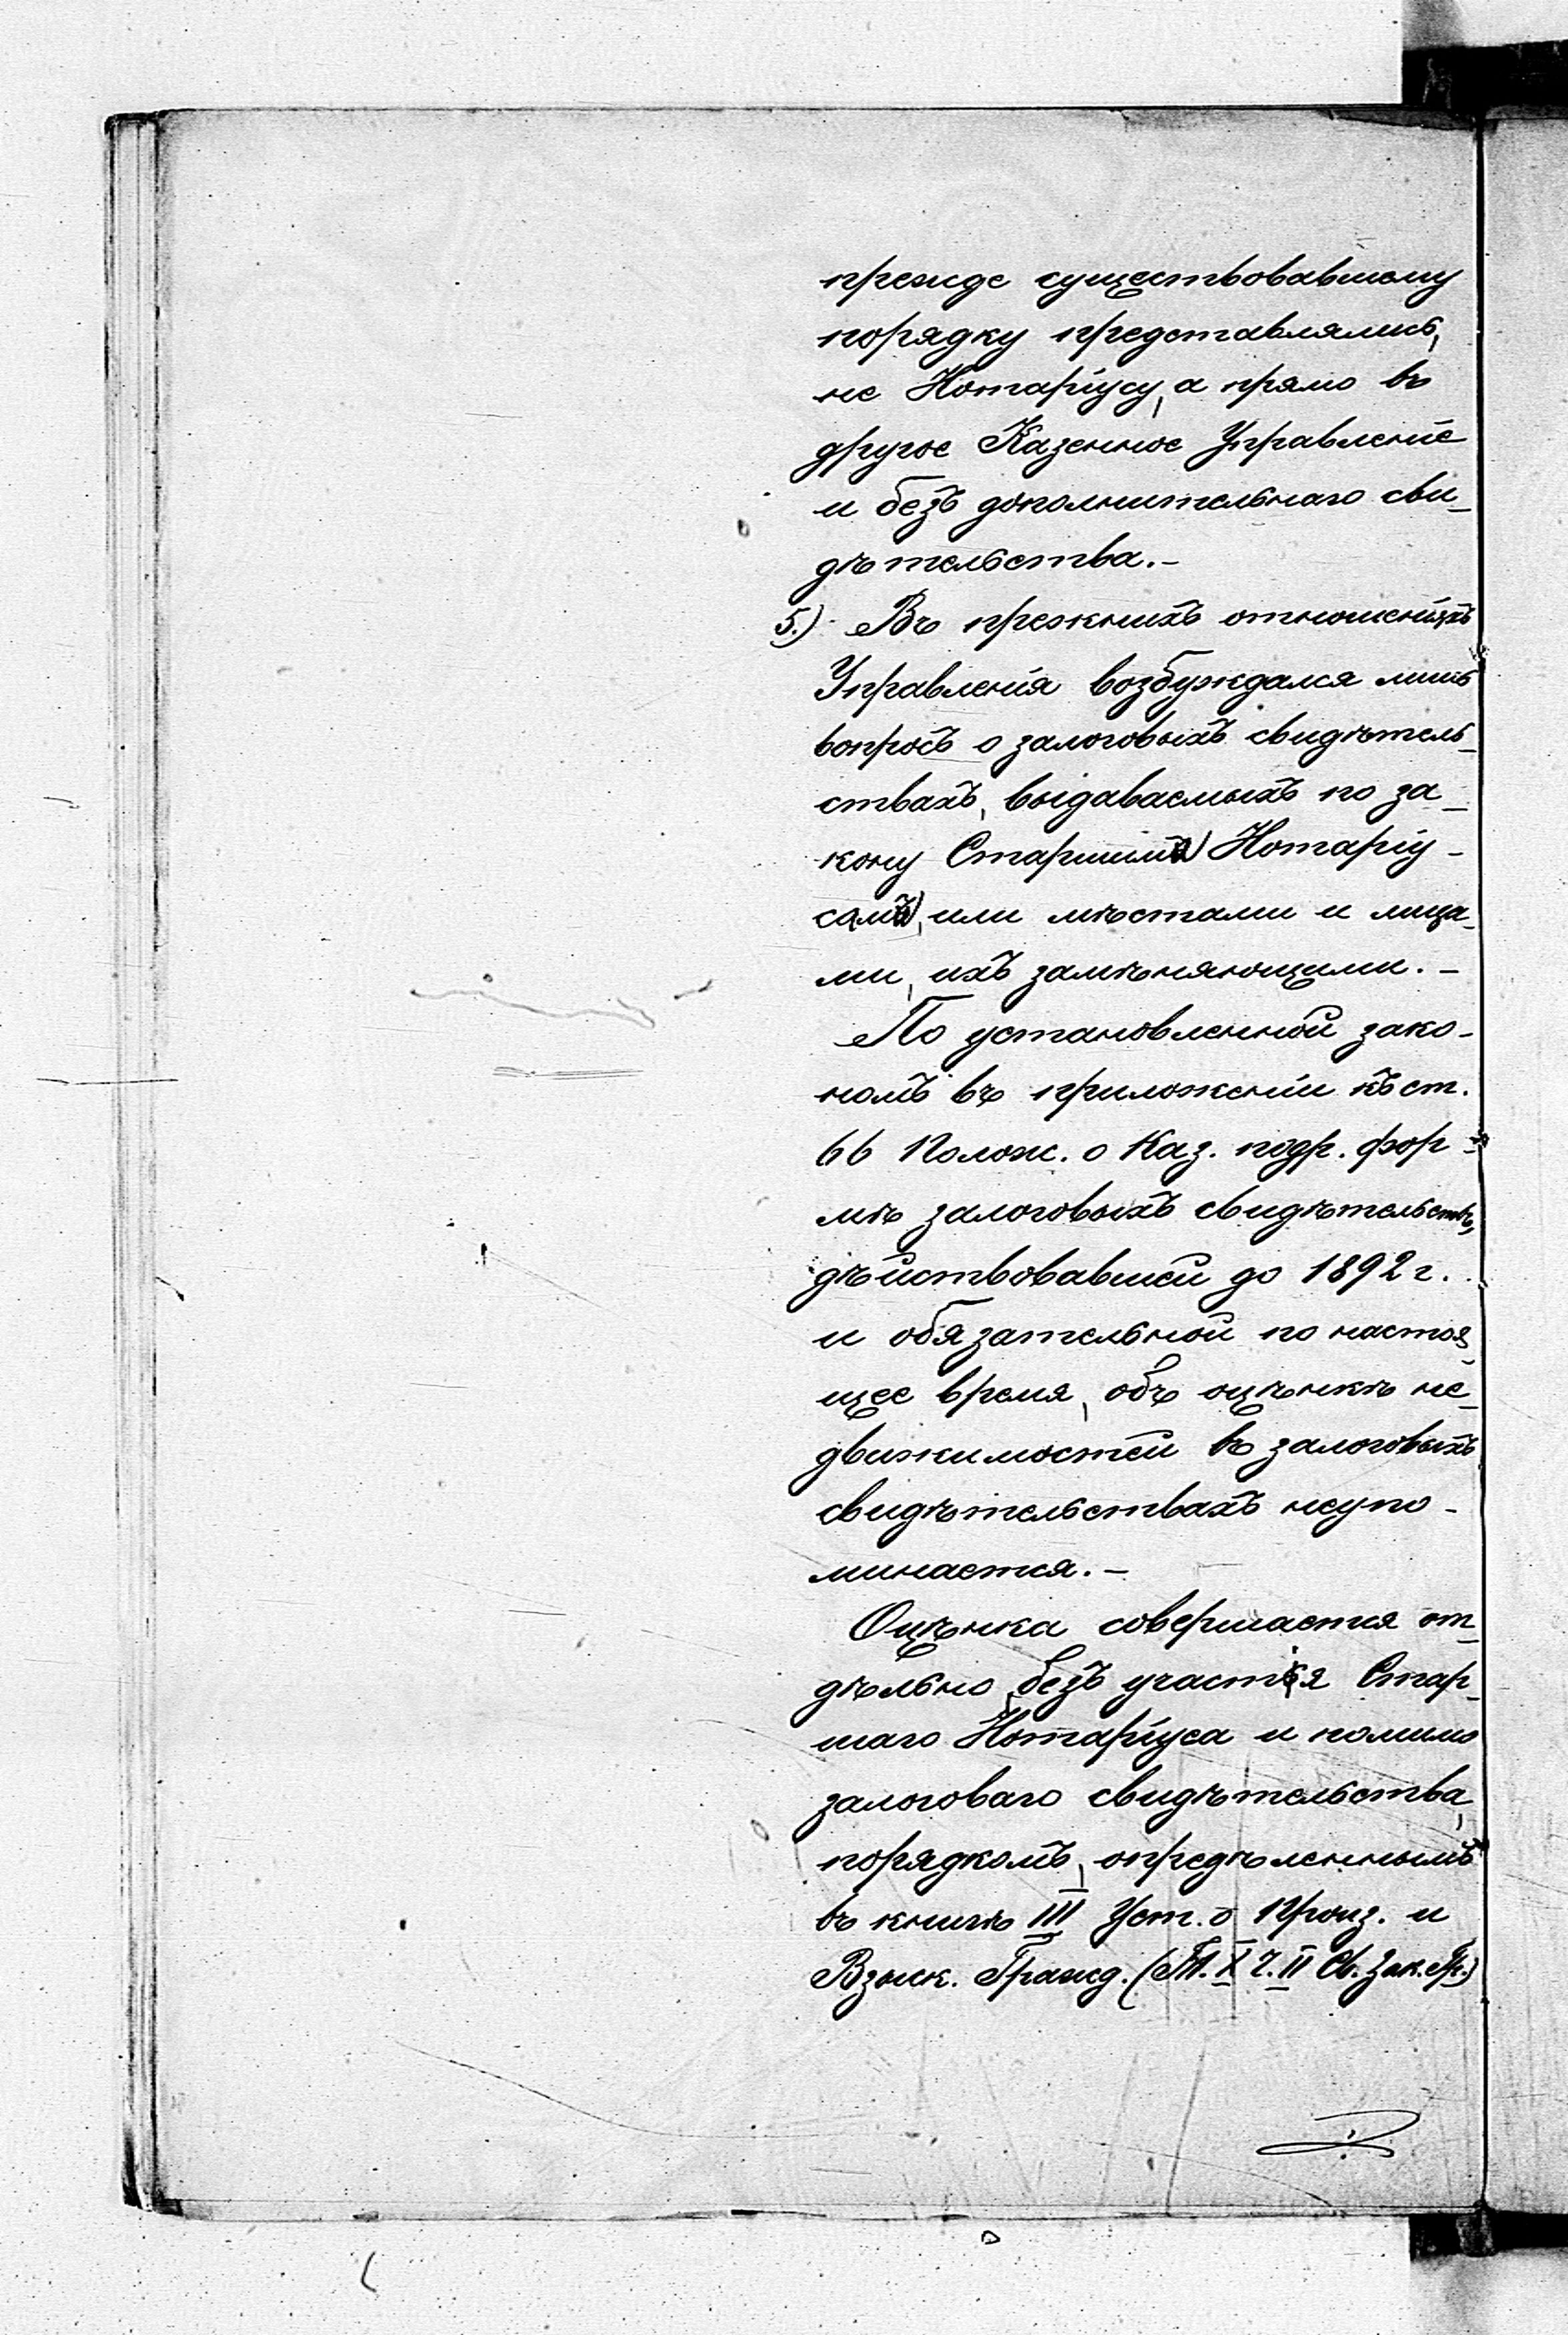 прежде существовавшему
порядку представлялись,
не Нотаріусу, а прямо въ
другое Казенное Управленіе
и безъ дополнительнаго сви-
дѣтельства.-
5.) Въ прежнихъ отношеніяхъ
Управленія возбуждался лишь
вопросъ о залоговыхъ свидѣтель-
ствахъ, выдаваемыхъ по за-
кону Старшимъ Нотаріу-
сомъ, или мѣстами и лица-
ми, ихъ замѣняющими.-
По установленной зако-
номъ въ приложеніи къ ст.
66 Полож. о Каз. подр. фор-
мѣ залоговыхъ свидѣтельствъ,
дѣйствовавшей до 1892 г.
и обязательной по настоя-
щее время, объ оцѣнкѣ не-
движимостей въ залоговыхъ
свидѣтельствахъ неупо-
минается.-
Оцѣнка совершается от-
дѣльно, безъ участія Стар-
шаго Нотаріуса и помимо
залоговаго свидѣтельства,
порядкомъ, опредѣленнымъ
въ книгѣ III Уст. о Произ. и
Взыск. Гражд. (Т. X ч. II Св. Зак. Гр.)